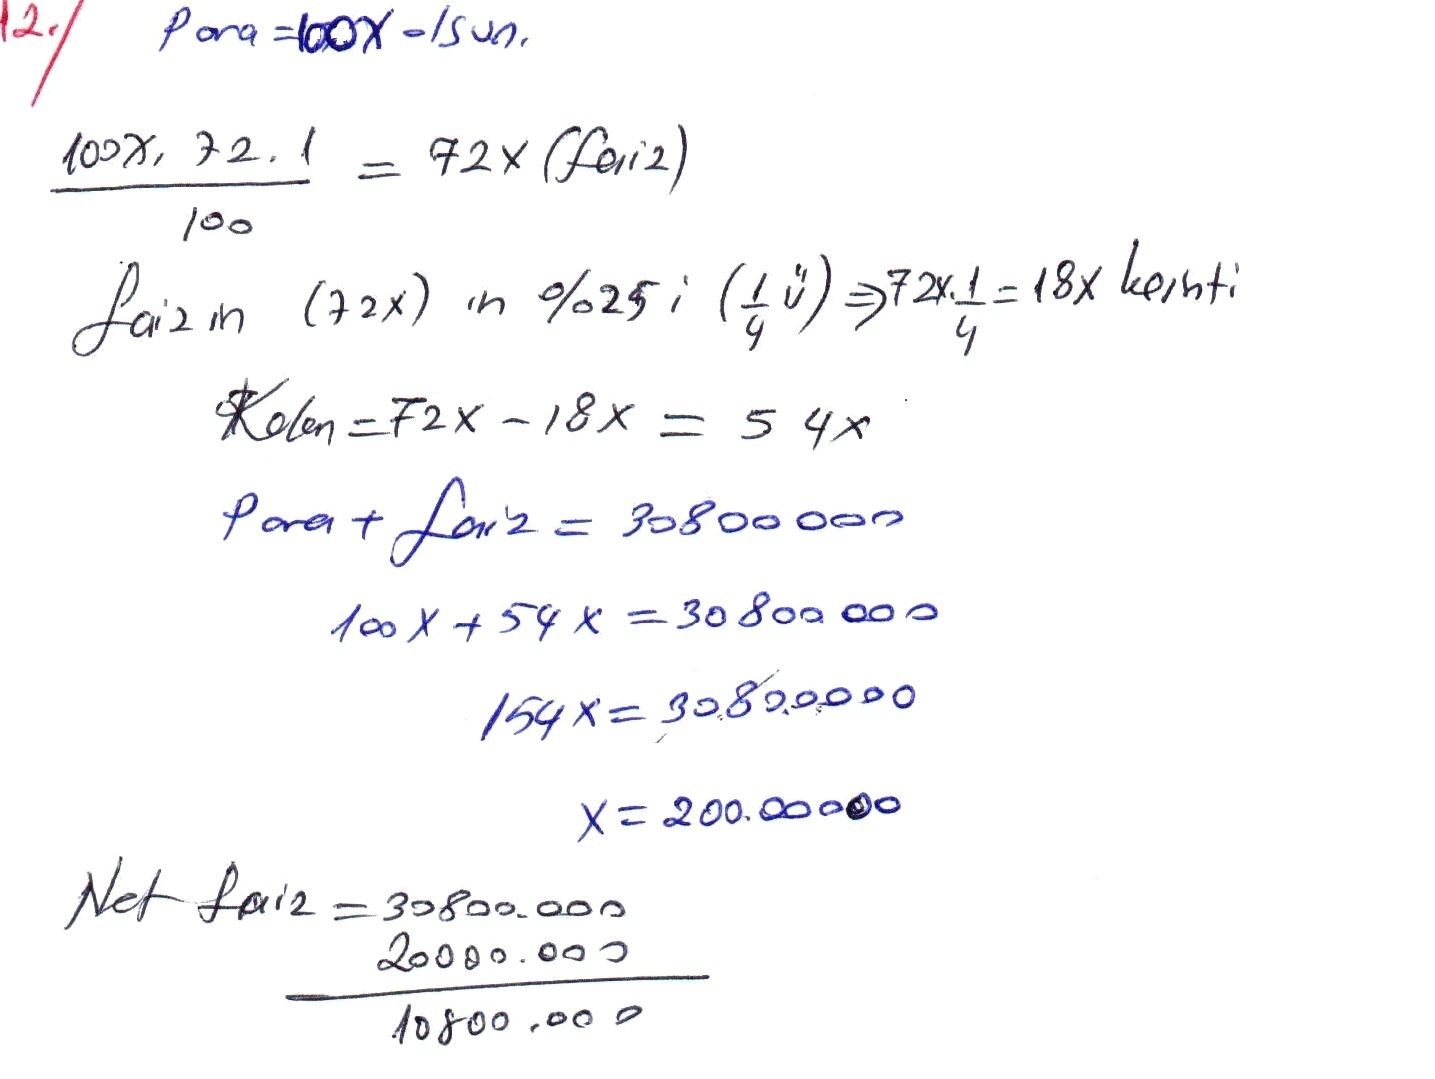 12./ Para = 100X - 1sun.
100X. 72. 1 / 100 = 72X (faiz)
faizin (72X) in %25 i (1/4 ü) ⇒ 72X. 1/4 = 18X kesinti
Kalan = 72X - 18X = 54X
Para + faiz = 30800 000
100X + 54X = 30800 000
154X = 30.800.000
X = 200.00000
Net faiz = 30800.000
20000.000
10800.000